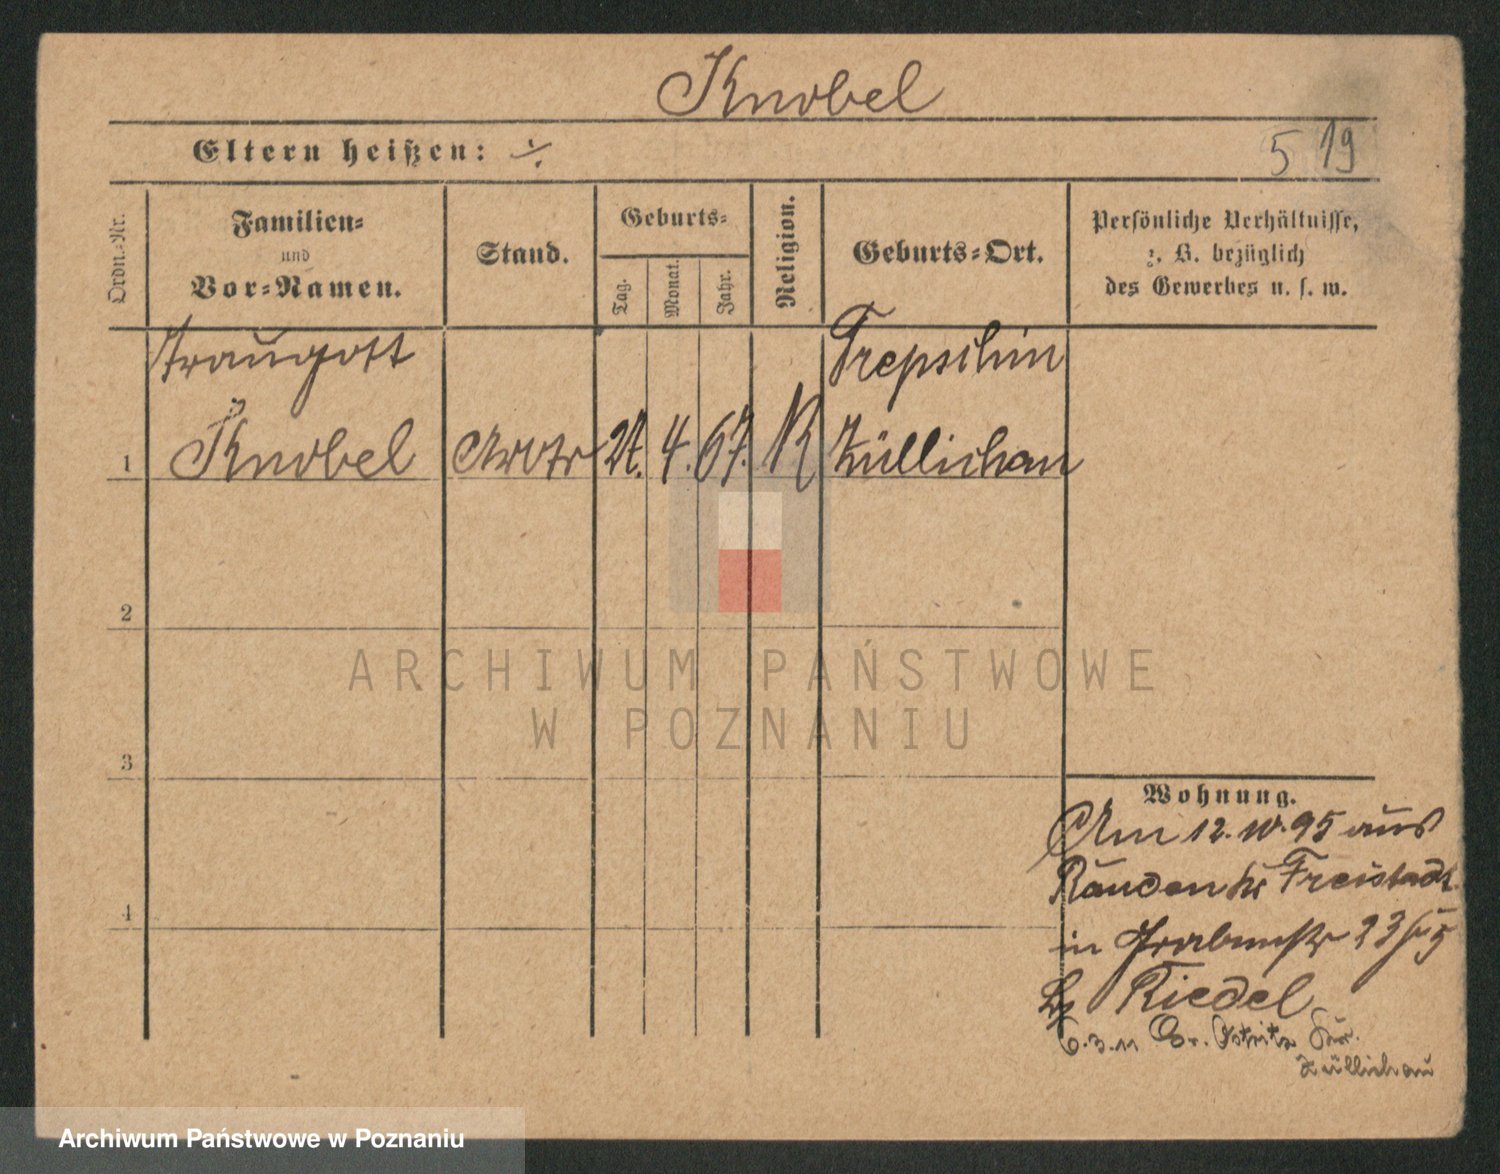 Knobel
Eltern heißen: ·/·
5 19
Ordn.-Nr.
Familien-
und
Vor-Namen.
Stand.
Geburts-
Tag.
Monat.
Jahr.
Religion.
Geburts-Ort.
Persönliche Verhältnisse,
z. B. bezüglich
des Gewerbes u. s. w.
Traugott
1 Knobel Arbtr 27. 4. 67. K Züllichau
2
3
4
Wohnung.
Am 12.10.95 aus
Rauden Kr Freistadt
in 23
bz Riedel
6.3.11 Kr.
Züllichau
ARCHIWUM PAŃSTWOWE
W POZNANIU
Archiwum Państwowe w Poznaniu